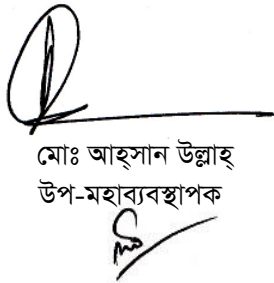 মোঃ আহ্‌সান উল্লাহ্
উপ-মহাব্যবস্থাপক